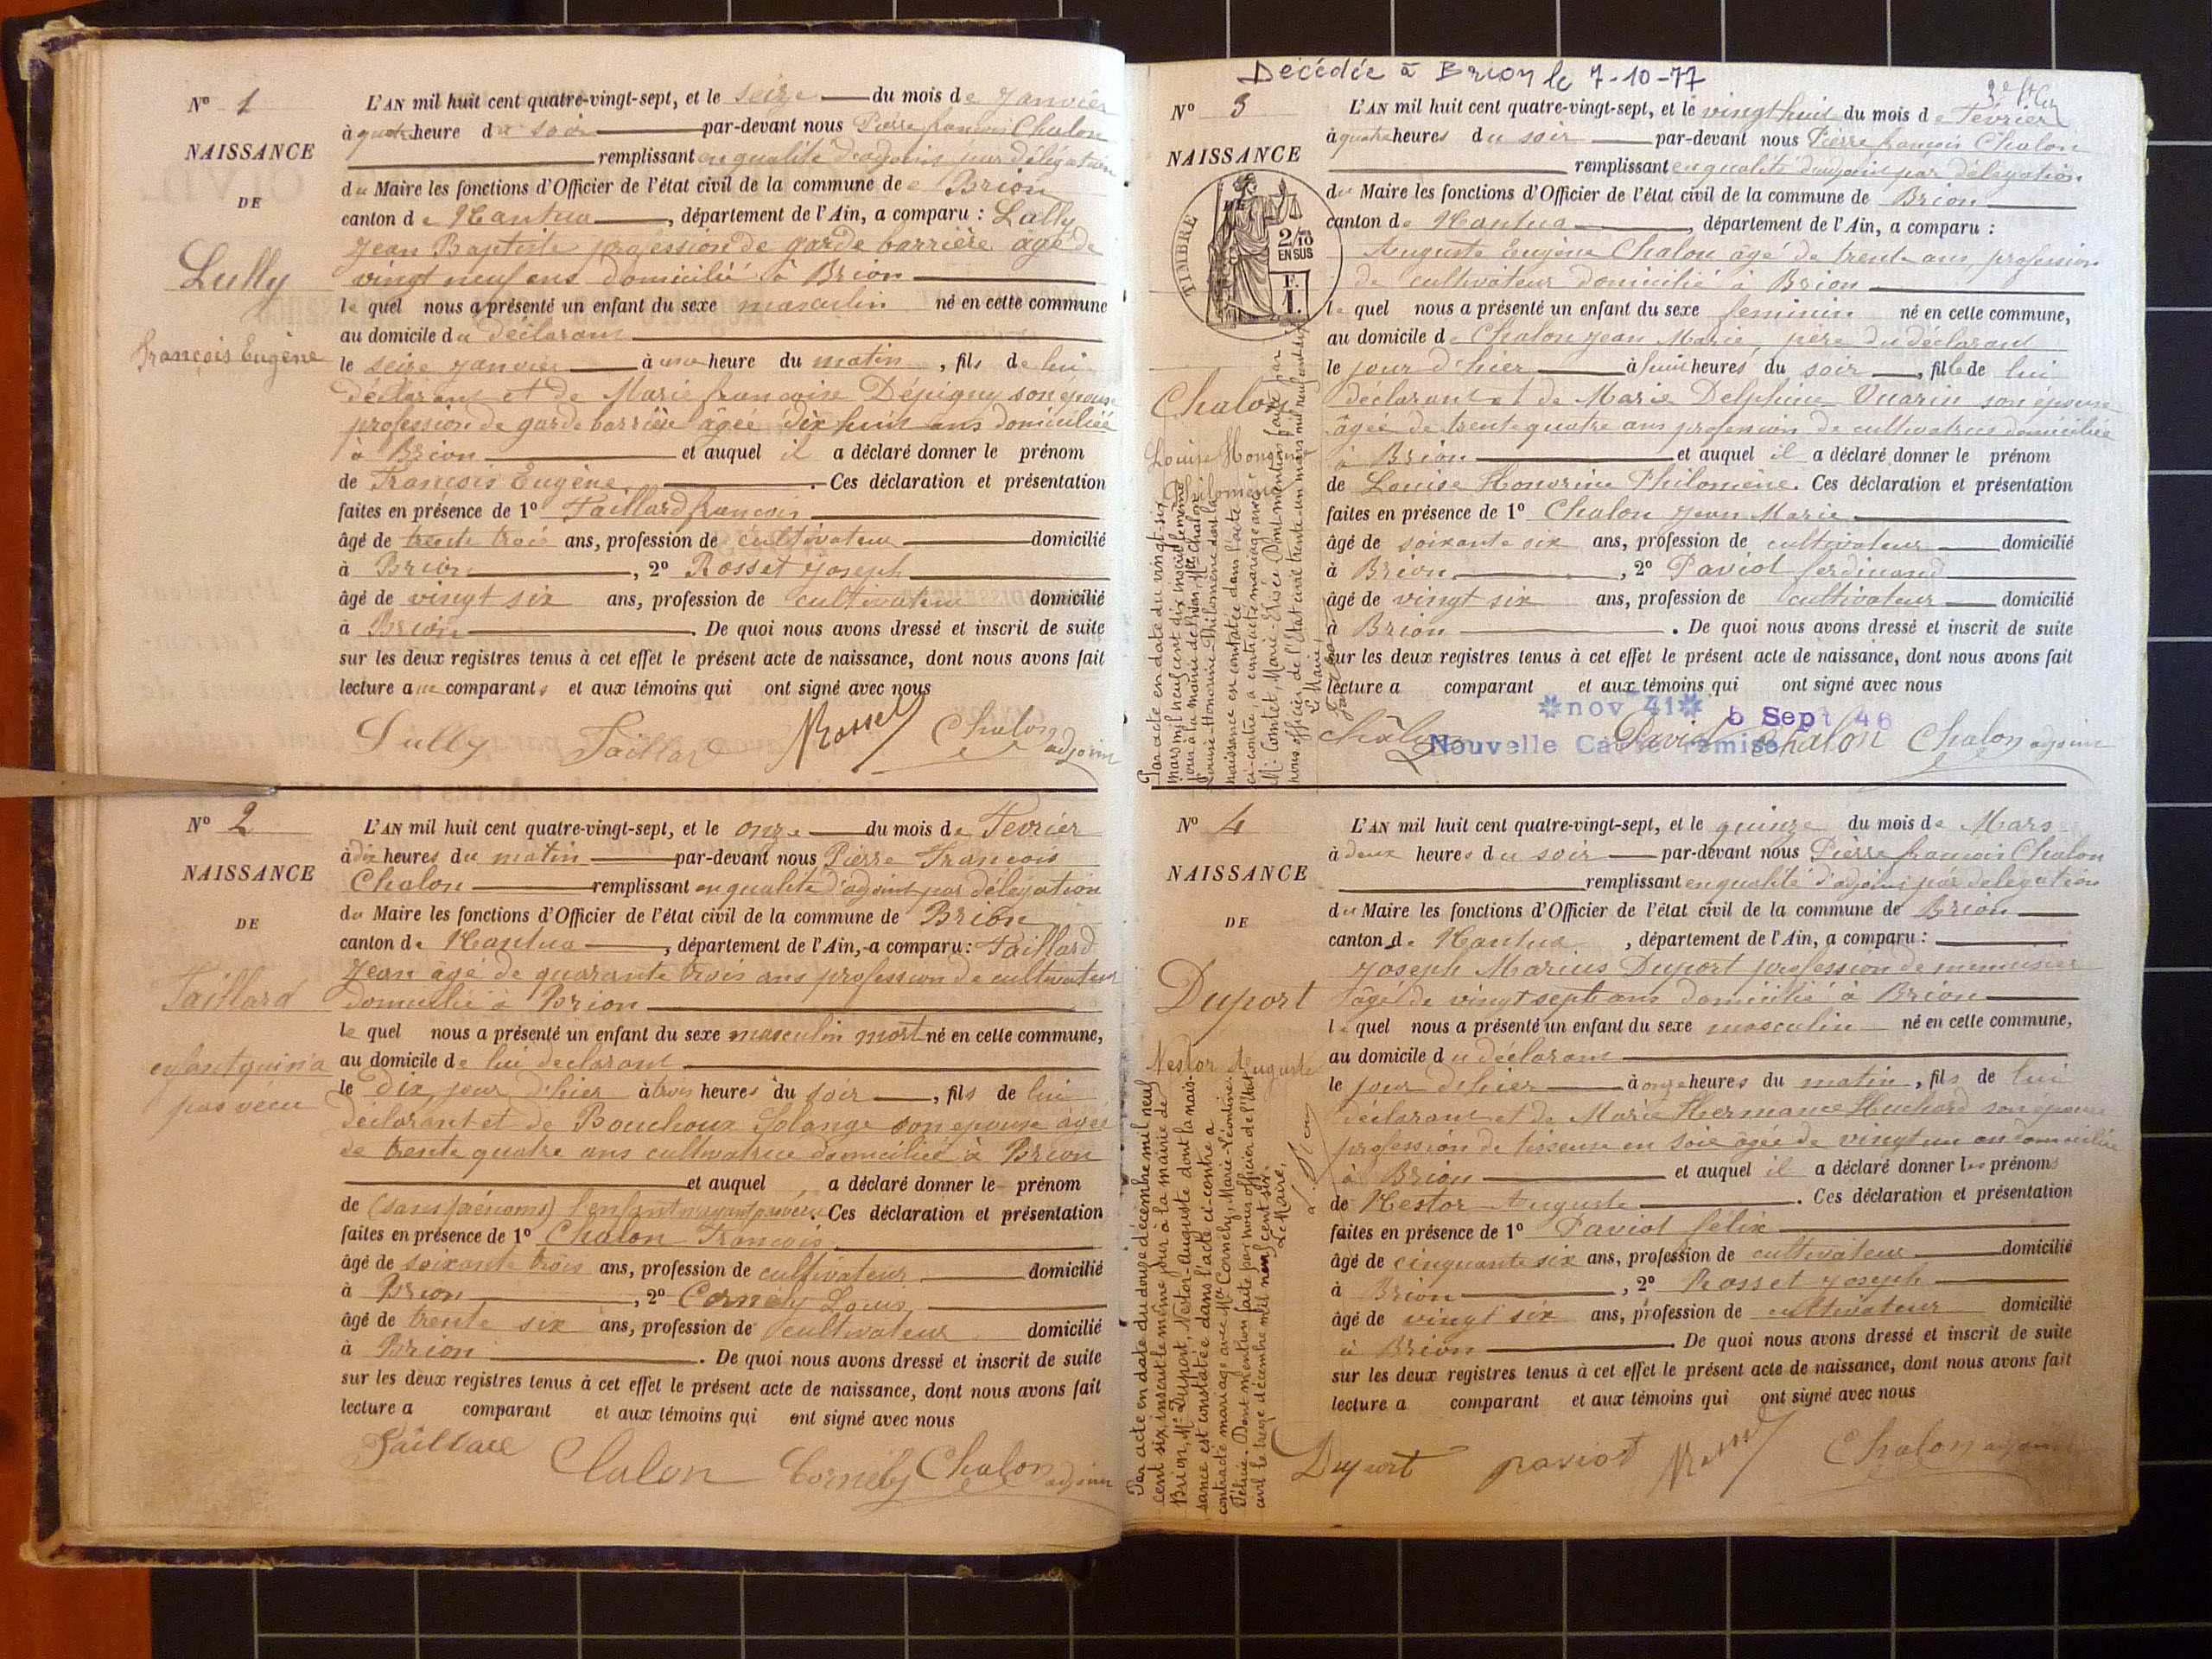 N° 1
NAISSANCE
DE
Lully
François Eugène
L'AN mil huit cent quatre-vingt-sept, et le seize du mois de Janvier
à quatre heure du soir par-devant nous Pierre françois Chalon
remplissant en qualité d'adjoint par délégation
du Maire les fonctions d'Officier de l'état civil de la commune de Brion
canton de Nantua, département de l'Ain, a comparu : Lully
Jean Baptiste profession de garde barrière âgé de
vingt neuf ans domicilié à Brion
le quel nous a présenté un enfant du sexe masculin né en cette commune
au domicile du déclarant
le seize janvier à une heure du matin, fils de lui
déclarant et de Marie françoise Dépigny son épouse
profession de garde barrière âgée dix huit ans domiciliée
à Brion et auquel il a déclaré donner le prénom
de François Eugène. Ces déclaration et présentation
faites en présence de 1° Taillard françois
âgé de trente trois ans, profession de cultivateur domicilié
à Brion, 2° Rosset Joseph
âgé de vingt six ans, profession de cultivateur domicilié
à Brion. De quoi nous avons dressé et inscrit de suite
sur les deux registres tenus à cet effet le présent acte de naissance, dont nous avons fait
lecture aux comparants et aux témoins qui ont signé avec nous
Lully Taillard Rosset Chalon adjoint
N° 2
NAISSANCE
DE
Taillard
enfant qui n'a
pas vécu
L'AN mil huit cent quatre-vingt-sept, et le onze du mois de Fevrier
à dix heures du matin par-devant nous Pierre François
Chalon remplissant en qualité d'adjoint par délégation
du Maire les fonctions d'Officier de l'état civil de la commune de Brion
canton de Nantua, département de l'Ain, a comparu : Taillard
Jean âgé de quarante trois ans profession de cultivateur
domicilié à Brion
le quel nous a présenté un enfant du sexe masculin mort né en cette commune,
au domicile de lui declarant
le dix, jour d'hier à trois heures du soir, fils de lui
déclarant et de Bouchoux Solange son epouse âgée
de trente quatre ans cultivatrice domiciliée à Brion
et auquel a déclaré donner le prénom
de (sans prénoms) l'enfant n'ayant pas vécu. Ces déclaration et présentation
faites en présence de 1° Chalon François
âgé de soixante trois ans, profession de cultivateur domicilié
à Brion, 2° Cornély Louis
âgé de trente six ans, profession de cultivateur domicilié
à Brion. De quoi nous avons dressé et inscrit de suite
sur les deux registres tenus à cet effet le présent acte de naissance, dont nous avons fait
lecture a comparant et aux témoins qui ont signé avec nous
Taillard Chalon Cornély Chalon adjoint
Décédée à Brion le 7-10-77
N° 3
NAISSANCE
DE
TIMBRE
2/10
EN SUS
F.
1.
Chalon
Louise Honorine
Philomène
L'AN mil huit cent quatre-vingt-sept, et le vingt huit du mois de Février
à quatre heures du soir par-devant nous Pierre françois Chalon
remplissant en qualité d'adjoint par délégation
du Maire les fonctions d'Officier de l'état civil de la commune de Brion
canton de Nantua, département de l'Ain, a comparu :
Auguste Eugène Chalon âgé de trente ans, profession
de cultivateur domicilié à Brion
le quel nous a présenté un enfant du sexe feminin né en cette commune,
au domicile de Chalon Jean Marie, père du déclarant
le jour d'hier à huit heures du soir, fille de lui
déclarant et de Marie Delphine Vuarin son épouse
âgée de trente quatre ans profession de cultivatrice domiciliée
à Brion et auquel il a déclaré donner le prénom
de Louise Honorine Philomène. Ces déclaration et présentation
faites en présence de 1° Chalon Jean Marie
âgé de soixante six ans, profession de cultivateur domicilié
à Brion, 2° Paviot ferdinand
âgé de vingt six ans, profession de cultivateur domicilié
à Brion. De quoi nous avons dressé et inscrit de suite
sur les deux registres tenus à cet effet le présent acte de naissance, dont nous avons fait
lecture a comparant et aux témoins qui ont signé avec nous
nov 41 5 Sept 46
Nouvelle Carte remise
Chalon Paviot Chalon Chalon adjoint
Par acte en date du vingt-six
mars mil neuf cent dix inscrit le même
jour à la mairie de Brion, Mlle Chalon,
Louise-Honorine-Philomène dont la
naissance est constatée dans l'acte
ci-contre, a contracté mariage avec
Mr Comtet, Marie Élisée. Dont mention faite par
nous officier de l'État civil le trente-un mars mil neuf cent dix.
Le Maire,
N° 4
NAISSANCE
DE
Duport
Nestor Auguste
L'AN mil huit cent quatre-vingt-sept, et le quinze du mois de Mars
à deux heures du soir par-devant nous Pierre françois Chalon
remplissant en qualité d'adjoint par délégation
du Maire les fonctions d'Officier de l'état civil de la commune de Brion
canton de Nantua, département de l'Ain, a comparu :
Joseph Marius Duport profession de menuisier
âgé de vingt sept ans domicilié à Brion
le quel nous a présenté un enfant du sexe masculin né en cette commune,
au domicile du déclarant
le jour d'hier à onze heures du matin, fils de lui
déclarant et de Marie Hermance Huchard son épouse
profession de tisseuse en soie âgée de vingt un an domiciliée
à Brion et auquel il a déclaré donner les prénoms
de Nestor Auguste. Ces déclaration et présentation
faites en présence de 1° Paviot félix
âgé de cinquante six ans, profession de cultivateur domicilié
à Brion, 2° Rosset Joseph
âgé de vingt six ans, profession de cultivateur domicilié
à Brion. De quoi nous avons dressé et inscrit de suite
sur les deux registres tenus à cet effet le présent acte de naissance, dont nous avons fait
lecture a comparant et aux témoins qui ont signé avec nous
Duport paviot Rosset Chalon adjoint
Par acte en date du douze décembre mil neuf
cent six, inscrit le même jour à la mairie de
Brion, Mr Duport, Nestor-Auguste dont la nais-
sance est constatée dans l'acte ci-contre a
contracté mariage avec Mlle Cornély, Marie-Léontine-
Félicie. Dont mention faite par nous officier de l'état
civil le treize décembre mil neuf cent six.
Le Maire,